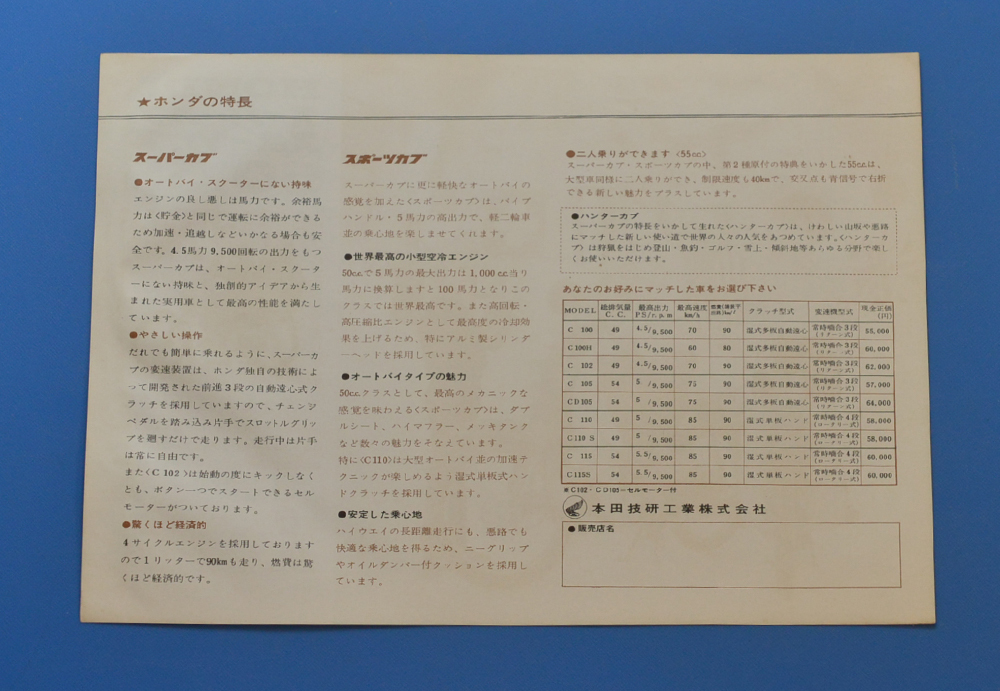 ★ホンダの特長
スーパーカブ
●オートバイ・スクーターにない持味
エンジンの良し悪しは馬力です。余裕馬
力は〈貯金〉と同じで運転に余裕ができる
ため加速・追越しなどいかなる場合も安
全です。4.5馬力9,500回転の出力をもつ
スーパーカブは、オートバイ・スクータ
ーにない持味と、独創的アイデアから生
まれた実用車として最高の性能を満たし
ています。
●やさしい操作
だれでも簡単に乗れるように、スーパーカ
ブの変速装置は、ホンダ独自の技術によ
って開発された前進3段の自動遠心式ク
ラッチを採用していますので、チェンジ
ペダルを踏み込み片手でスロットルグリッ
プを廻すだけで走ります。走行中は片手
は常に自由です。
また〈C 102〉は始動の度にキックしなく
とも、ボタン一つでスタートできるセル
モーターがついております。
●驚くほど経済的
4サイクルエンジンを採用しております
ので1リッターで90kmも走り、燃費は驚
くほど経済的です。
スポーツカブ
スーパーカブに更に軽快なオートバイの
感覚を加えた〈スポーツカブ〉は、パイプ
ハンドル・5馬力の高出力で、軽二輪車
並の乗心地を楽しませてくれます。
●世界最高の小型空冷エンジン
50c.c.で5馬力の最大出力は1,000c.c.当り
馬力に換算しますと100馬力となりこの
クラスでは世界最高です。また高回転・
高圧縮比エンジンとして最高度の冷却効
果を上げるため、特にアルミ製シリンダ
ーヘッドを採用しています。
●オートバイタイプの魅力
50c.c.クラスとして、最高のメカニックな
感覚を味わえる〈スポーツカブ〉は、ダブ
ルシート、ハイマフラー、メッキタンク
など数々の魅力をそなえています。
特に〈C110〉は大型オートバイ並の加速テ
クニックが楽しめるよう湿式単板式ハン
ドクラッチを採用しています。
●安定した乗心地
ハイウエイの長距離走行にも、悪路でも
快適な乗心地を得るため、ニーグリップ
やオイルダンパー付クッションを採用し
ています。
●二人乗りができます〈55cc〉
スーパーカブ・スポーツカブの中、第2種原付の特典をいかした55c.c.は、
大型車同様に二人乗りができ、制限速度も40kmで、交叉点も青信号で右折
できる新しい魅力をプラスしています。
●ハンターカブ
スーパーカブの特長をいかして生れた〈ハンターカブ〉は、けわしい山坂や悪路
にマッチした新しい使い道で世界の人々の人気をあつめています。〈ハンターカ
ブ〉は狩猟をはじめ登山・魚釣・ゴルフ・雪上・傾斜地等あらゆる分野で楽し
くお使いいただけます。
あなたのお好みにマッチした車をお選び下さい
MODEL 総排気量C.C. 最高出力P.S/r.p.m 最高速度km/h クラッチ型式 変速機型式 現金正価(円)
C 100 49 4.5/9,500 70 90 湿式多板自動遠心 常時噛合3段(リターン式) 55,000
C100H 49 4.5/9,500 60 80 湿式多板自動遠心 常時噛合3段(リターン式) 60,000
C 102 49 4.5/9,500 70 90 湿式多板自動遠心 常時噛合3段(リターン式) 62,000
C 105 54 5/9,500 75 90 湿式多板自動遠心 常時噛合3段(リターン式) 57,000
CD105 54 5/9,500 75 90 湿式多板自動遠心 常時噛合3段(リターン式) 64,000
C 110 49 5/9,500 85 90 湿式単板ハンド 常時噛合4段(ロータリー式) 58,000
C110 S 49 5/9,500 85 90 湿式単板ハンド 常時噛合4段(ロータリー式) 58,000
C 115 54 5.5/9,500 85 90 湿式単板ハンド 常時噛合4段(ロータリー式) 60,000
C115S 54 5.5/9,500 85 90 湿式単板ハンド 常時噛合4段(ロータリー式) 60,000
※C102・CD105=セルモーター付
本田技研工業株式会社
●販売店名